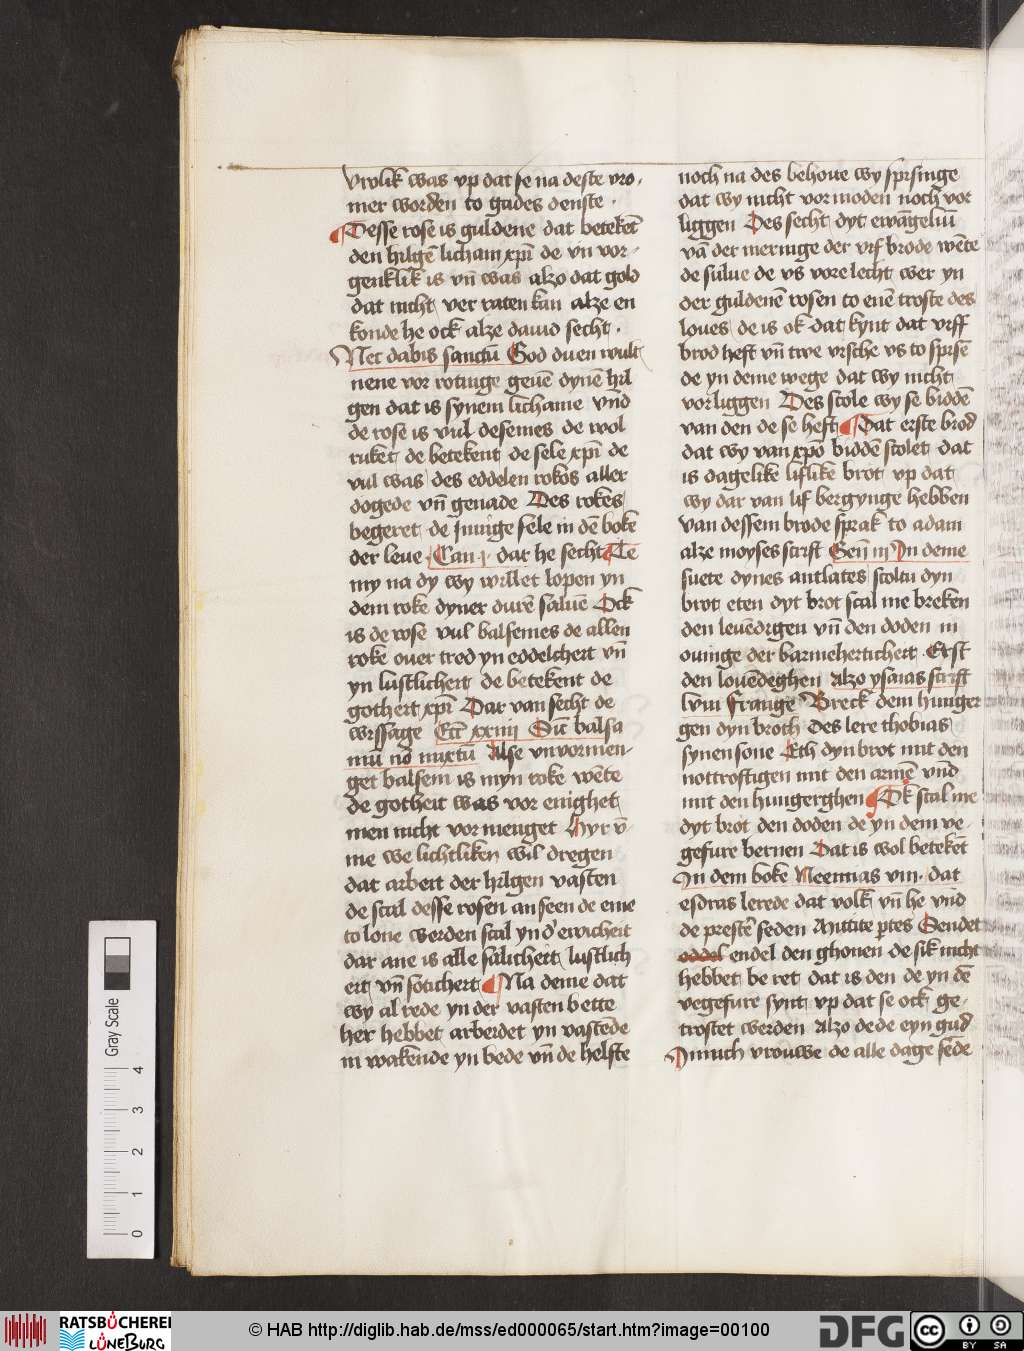 vrolik was vp dat se na deste vro-
mer worden to gades denste .
Desse rose is guldene dat beteket
den hilgē licham xpī de vn vor-
genklik is vn̄ was alzo dat gold
dat nicht ver raten kan alze en
konde he ock alze dauid secht .
Nec dabis sanctū God du en wult
nene vor rotinge geuē dynē hil
gen dat is synem lichame vnd
de rose is vul desemes de wol
ruket de betekent de sele xpī de
vul was des eddelen rokes aller
dogede vn̄ genade Des rokes
begeret de Innige sele in dē boke
der leue Can i dar he secht Te
my na dy wy willet lopen yn
dem roke dyner durē saluē Ock
is de rose vul balsemes de allen
roke ouer tred yn eddelcheit vn̄
yn lustlicheit de betekent de
gotheit xpī Dar van secht de
wissage Ecc xxiiii Sic balsa
mū nō mixtū Alse vnvormen-
get balsem is myn roke wēte
de gotheit was vor enighet
men nicht vor menget Hyr v̄-
me we lichtliken wil dregen
dat arbeit der hilgen vasten
de scal desse rosen an seen de eme
to lone werden scal yn d' ewicheit
dar ane is alle salicheit lustlich
eit vn̄ soticheit Na deme dat
wy al rede yn der vasten bette
her hebbet arbeidet yn vastēde
in wakende yn bede vn̄ de helfte
noch na des behoue wy spisinge
dat wy nicht vor moden noch vor
liggen Des secht dyt ewāgeliū
vā der meringe der vif brode wēte
de sulue de vs vore lecht wer yn
der guldenē rosen to enē troste des
loues de is ok dat kynt dat viff
brod heft vn̄ twe vissche vs to spisē
de yn deme wege dat wy nicht
vorliggen Des scole wy se biddē
van den de se heft Dat erste brod
dat wy van xpo biddē scolet dat
is dagelike liflike brot vp dat
wy dar van lif bergynge hebben
Van dessem brode sprak to adam
alze moyses scrift Gen̄ iij In deme
suete dynes antlates scoltu dyn
brot eten dyt brot scal me breken
den leuēdigen vn̄ den doden in
ouinge der barmeherticheit Erst
den louēdeghen Alzo ysaias scrift
lviii Frange Breck dem hunger
gen dyn broth Des lere thobias
synen sone Eth dyn brot mit den
nottroftigen mit den armē vnd
mit den hungerghen Ok scal me
dyt brot den doden de yn dem ve-
gefure bernen Dat is wol beteket
In dem boke Neemias viii . dat
esdras lerede dat volk vn̄ he vnd
de prestē seden Mittite ptes Sendet
eddel endel den ghonen de sik nicht
hebbet be ret dat is den de yn dē
vegefure synt vp dat se ock ge-
trostet werden Alzo dede eyn gud
Innich vrouwe de alle dage sēde
Gray Scale
0 1 2 3 4
RATSBÜCHEREI
LÜNEBURG
© HAB http://diglib.hab.de/mss/ed000065/start.htm?image=00100
DFG
cc BY SA